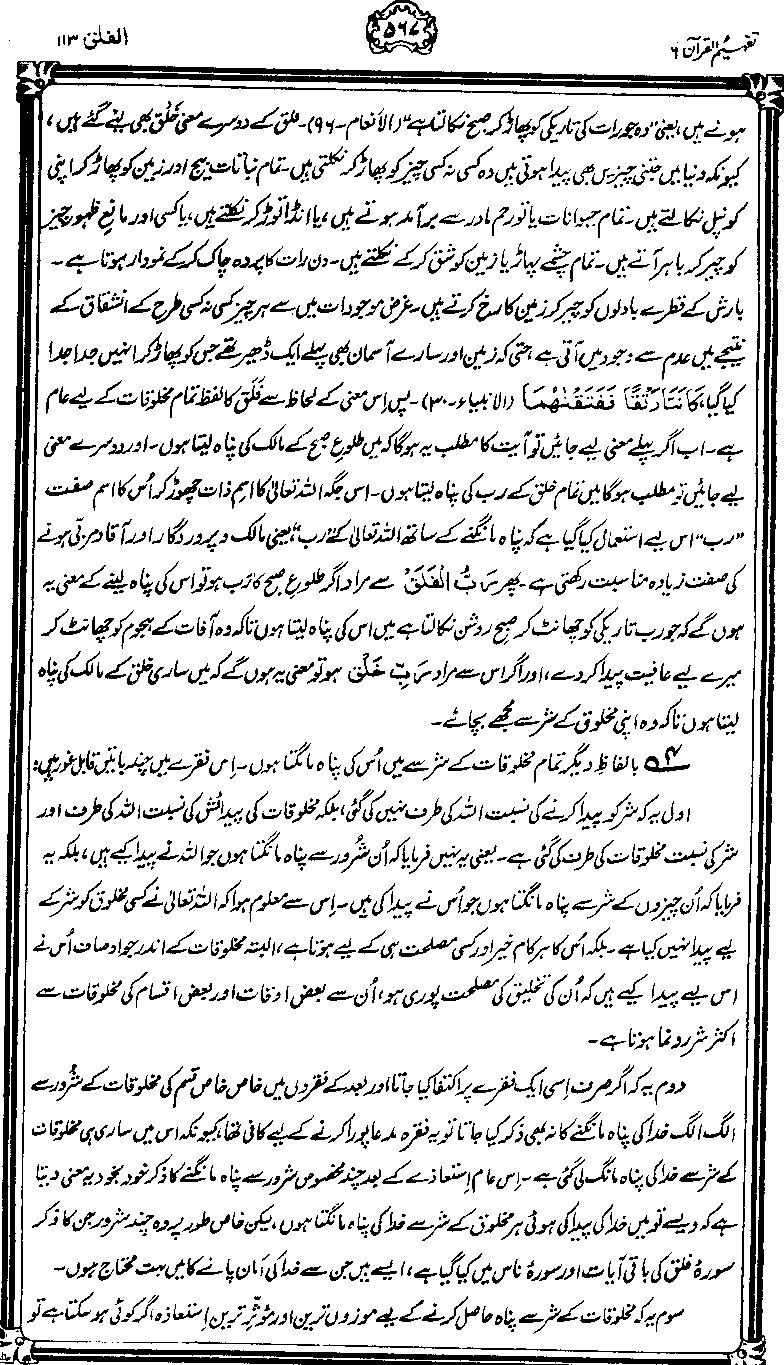 تفہیم القرآن ۶
۵۶۷
الفلق ۱۱۳
ہوتے ہیں، یعنی "وہ جو رات کی تاریکی کو پھاڑ کر صبح نکالتا ہے" (الانعام-۹۶)۔ فلق کے دوسرے معنی خَلْق بھی لیے گئے ہیں،
کیونکہ دنیا میں جتنی چیزیں بھی پیدا ہوتی ہیں وہ کسی نہ کسی چیز کو پھاڑ کر نکلتی ہیں۔ تمام نباتات بیج اور زمین کو پھاڑ کر اپنی
کونپل نکالتے ہیں۔ تمام حیوانات یا تو رحم مادر سے برآمد ہوتے ہیں، یا انڈا توڑ کر نکلتے ہیں، یا کسی اور مانع ظہور چیز
کو چیر کر باہر آتے ہیں۔ تمام چشمے پہاڑ یا زمین کو شق کر کے نکلتے ہیں۔ دن رات کا پردہ چاک کر کے نمودار ہوتا ہے۔
بارش کے قطرے بادلوں کو چیر کر زمین کا رخ کرتے ہیں۔ غرض موجودات میں سے ہر چیز کسی نہ کسی طرح کے انشقاق کے
نتیجے میں عدم سے وجود میں آتی ہے حتیٰ کہ زمین اور سارے آسمان بھی پہلے ایک ڈھیر تھے جس کو پھاڑ کر انہیں جدا جدا
کیا گیا، کَانَتَا رَتْقًا فَفَتَقْنٰهُمَا (الانبیاء-۳۰)۔ پس اِس معنی کے لحاظ سے فَلَق کا لفظ تمام مخلوقات کے لیے عام
ہے۔ اب اگر پہلے معنی لیے جائیں تو آیت کا مطلب یہ ہوگا کہ میں طلوعِ صبح کے مالک کی پناہ لیتا ہوں۔ اور دوسرے معنی
لیے جائیں تو مطلب ہوگا میں تمام خلق کے رب کی پناہ لیتا ہوں۔ اس جگہ اللہ تعالیٰ کا اسمِ ذات چھوڑ کر اُس کا اسم صفت
"رب" اس لیے استعمال کیا گیا ہے کہ پناہ مانگنے کے ساتھ اللہ تعالیٰ کے "رب"، یعنی مالک و پروردگار اور آقا و مربی ہونے
کی صفت زیادہ مناسبت رکھتی ہے۔ پھر رَبُّ الْفَلَقِ سے مراد اگر طلوعِ صبح کا رب ہو تو اس کی پناہ لینے کے معنی یہ
ہوں گے کہ جو رب تاریکی کو چھانٹ کر صبح روشن نکالتا ہے میں اس کی پناہ لیتا ہوں تاکہ وہ آفات کے ہجوم کو چھانٹ کر
میرے لیے عافیت پیدا کر دے، اور اگر اس سے مراد رَبِّ خَلْق ہو تو معنی یہ ہوں گے کہ میں ساری خلق کے مالک کی پناہ
لیتا ہوں تاکہ وہ اپنی مخلوق کے شر سے مجھے بچائے۔
بالفاظِ دیگر تمام مخلوقات کے شر سے میں اُس کی پناہ مانگتا ہوں۔ اِس فقرے میں چند باتیں قابل غور ہیں:
اول یہ کہ شر کو پیدا کرنے کی نسبت اللہ کی طرف نہیں کی گئی، بلکہ مخلوقات کی پیدائش کی نسبت اللہ کی طرف اور
شر کی نسبت مخلوقات کی طرف کی گئی ہے۔ یعنی یہ نہیں فرمایا کہ اُن شُرور سے پناہ مانگتا ہوں جو اللہ نے پیدا کیے ہیں، بلکہ یہ
فرمایا کہ اُن چیزوں کے شر سے پناہ مانگتا ہوں جو اُس نے پیدا کی ہیں۔ اِس سے معلوم ہوا کہ اللہ تعالیٰ نے کسی مخلوق کو شر کے
لیے پیدا نہیں کیا ہے۔ بلکہ اُس کا ہر کام خیر اور کسی مصلحت ہی کے لیے ہوتا ہے، البتہ مخلوقات کے اندر جو اوصاف اُس نے
اس لیے پیدا کیے ہیں کہ اُن کی تخلیق کی مصلحت پوری ہو، اُن سے بعض اوقات اور بعض اقسام کی مخلوقات سے
اکثر شر رونما ہوتا ہے۔
دوم یہ کہ اگر صرف اِسی ایک فقرے پر اکتفا کیا جاتا اور بعد کے فقروں میں خاص خاص قسم کی مخلوقات کے شُرور سے
الگ الگ خدا کی پناہ مانگنے کا نہ بھی ذکر کیا جاتا تو یہ فقرہ مدعا پورا کرنے کے لیے کافی تھا، کیونکہ اس میں ساری ہی مخلوقات
کے شر سے خدا کی پناہ مانگ لی گئی ہے۔ اِس عام اِستعاذے کے بعد چند مخصوص شرور سے پناہ مانگنے کا ذکر خود بخود یہ معنی دیتا
ہے کہ ویسے تو میں خدا کی پیدا کی ہوئی ہر مخلوق کے شر سے خدا کی پناہ مانگتا ہوں، لیکن خاص طور پر وہ چند شرور جن کا ذکر
سورۂ فلق کی باقی آیات اور سورۂ ناس میں کیا گیا ہے، ایسے ہیں جن سے خدا کی اَمان پانے کا میں بہت محتاج ہوں۔
سوم یہ کہ مخلوقات کے شر سے پناہ حاصل کرنے کے لیے موزوں ترین اور مؤثر ترین اِستعاذہ اگر کوئی ہو سکتا ہے تو